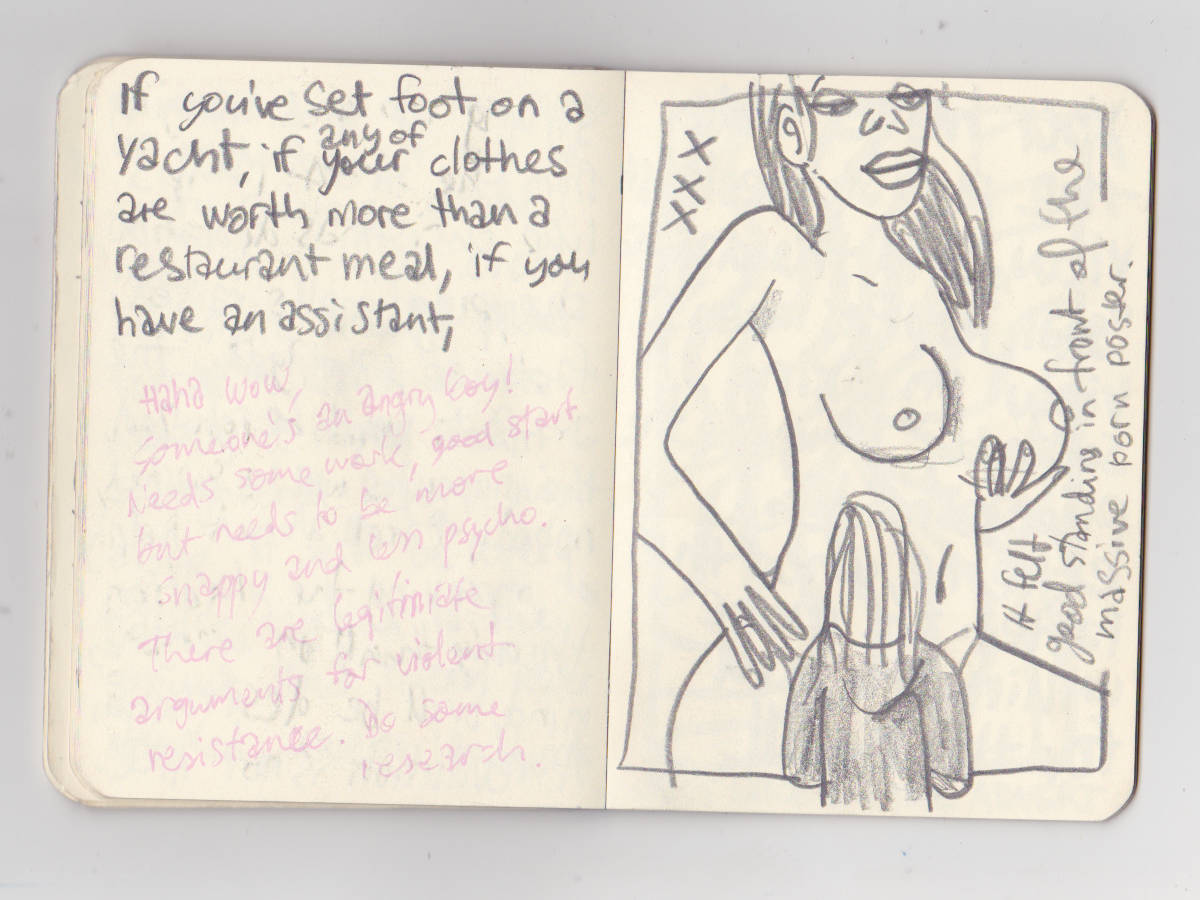 If you've set foot on a
yacht, if any of your clothes
are worth more than a
restaurant meal, if you
have an assistant,
Haha wow,
someone's an angry boy!
Needs some work, good start
but needs to be more
snappy and less psycho.
There are legitimiate
arguments for violent
resistance. Do some
research.
XXX
It felt
good standing in front of the
massive porn poster.